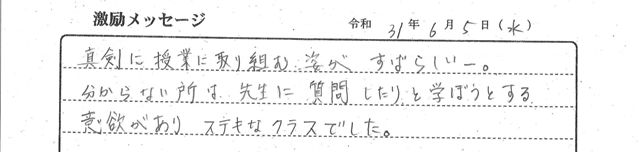 激励メッセージ 令和 31 年 6 月 5 日 (水)
真剣に授業に取り組む姿が すばらしいー。
分からない所は、先生に 質問 したりと学ぼうとする
意欲があり ステキなクラスでした。